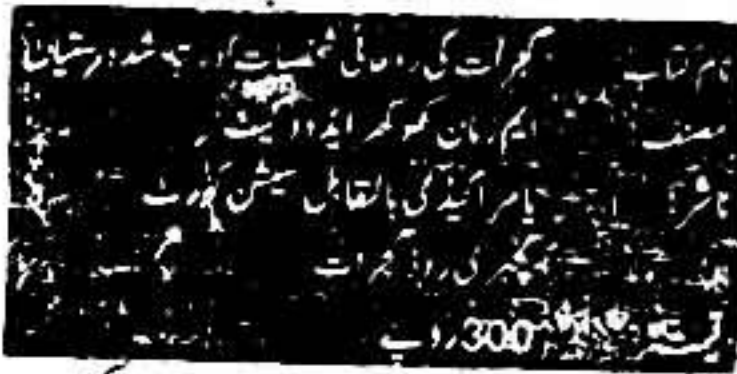 نام کتاب گجرات کی روحانی شخصیات اور تباہ شدہ بستیاں
مصنف ایم زمان کھوکھر ایڈووکیٹ
ناشر یاسر اکیڈمی بالمقابل سیشن کورٹ
کچہری روڈ گجرات
قیمت 300 روپے